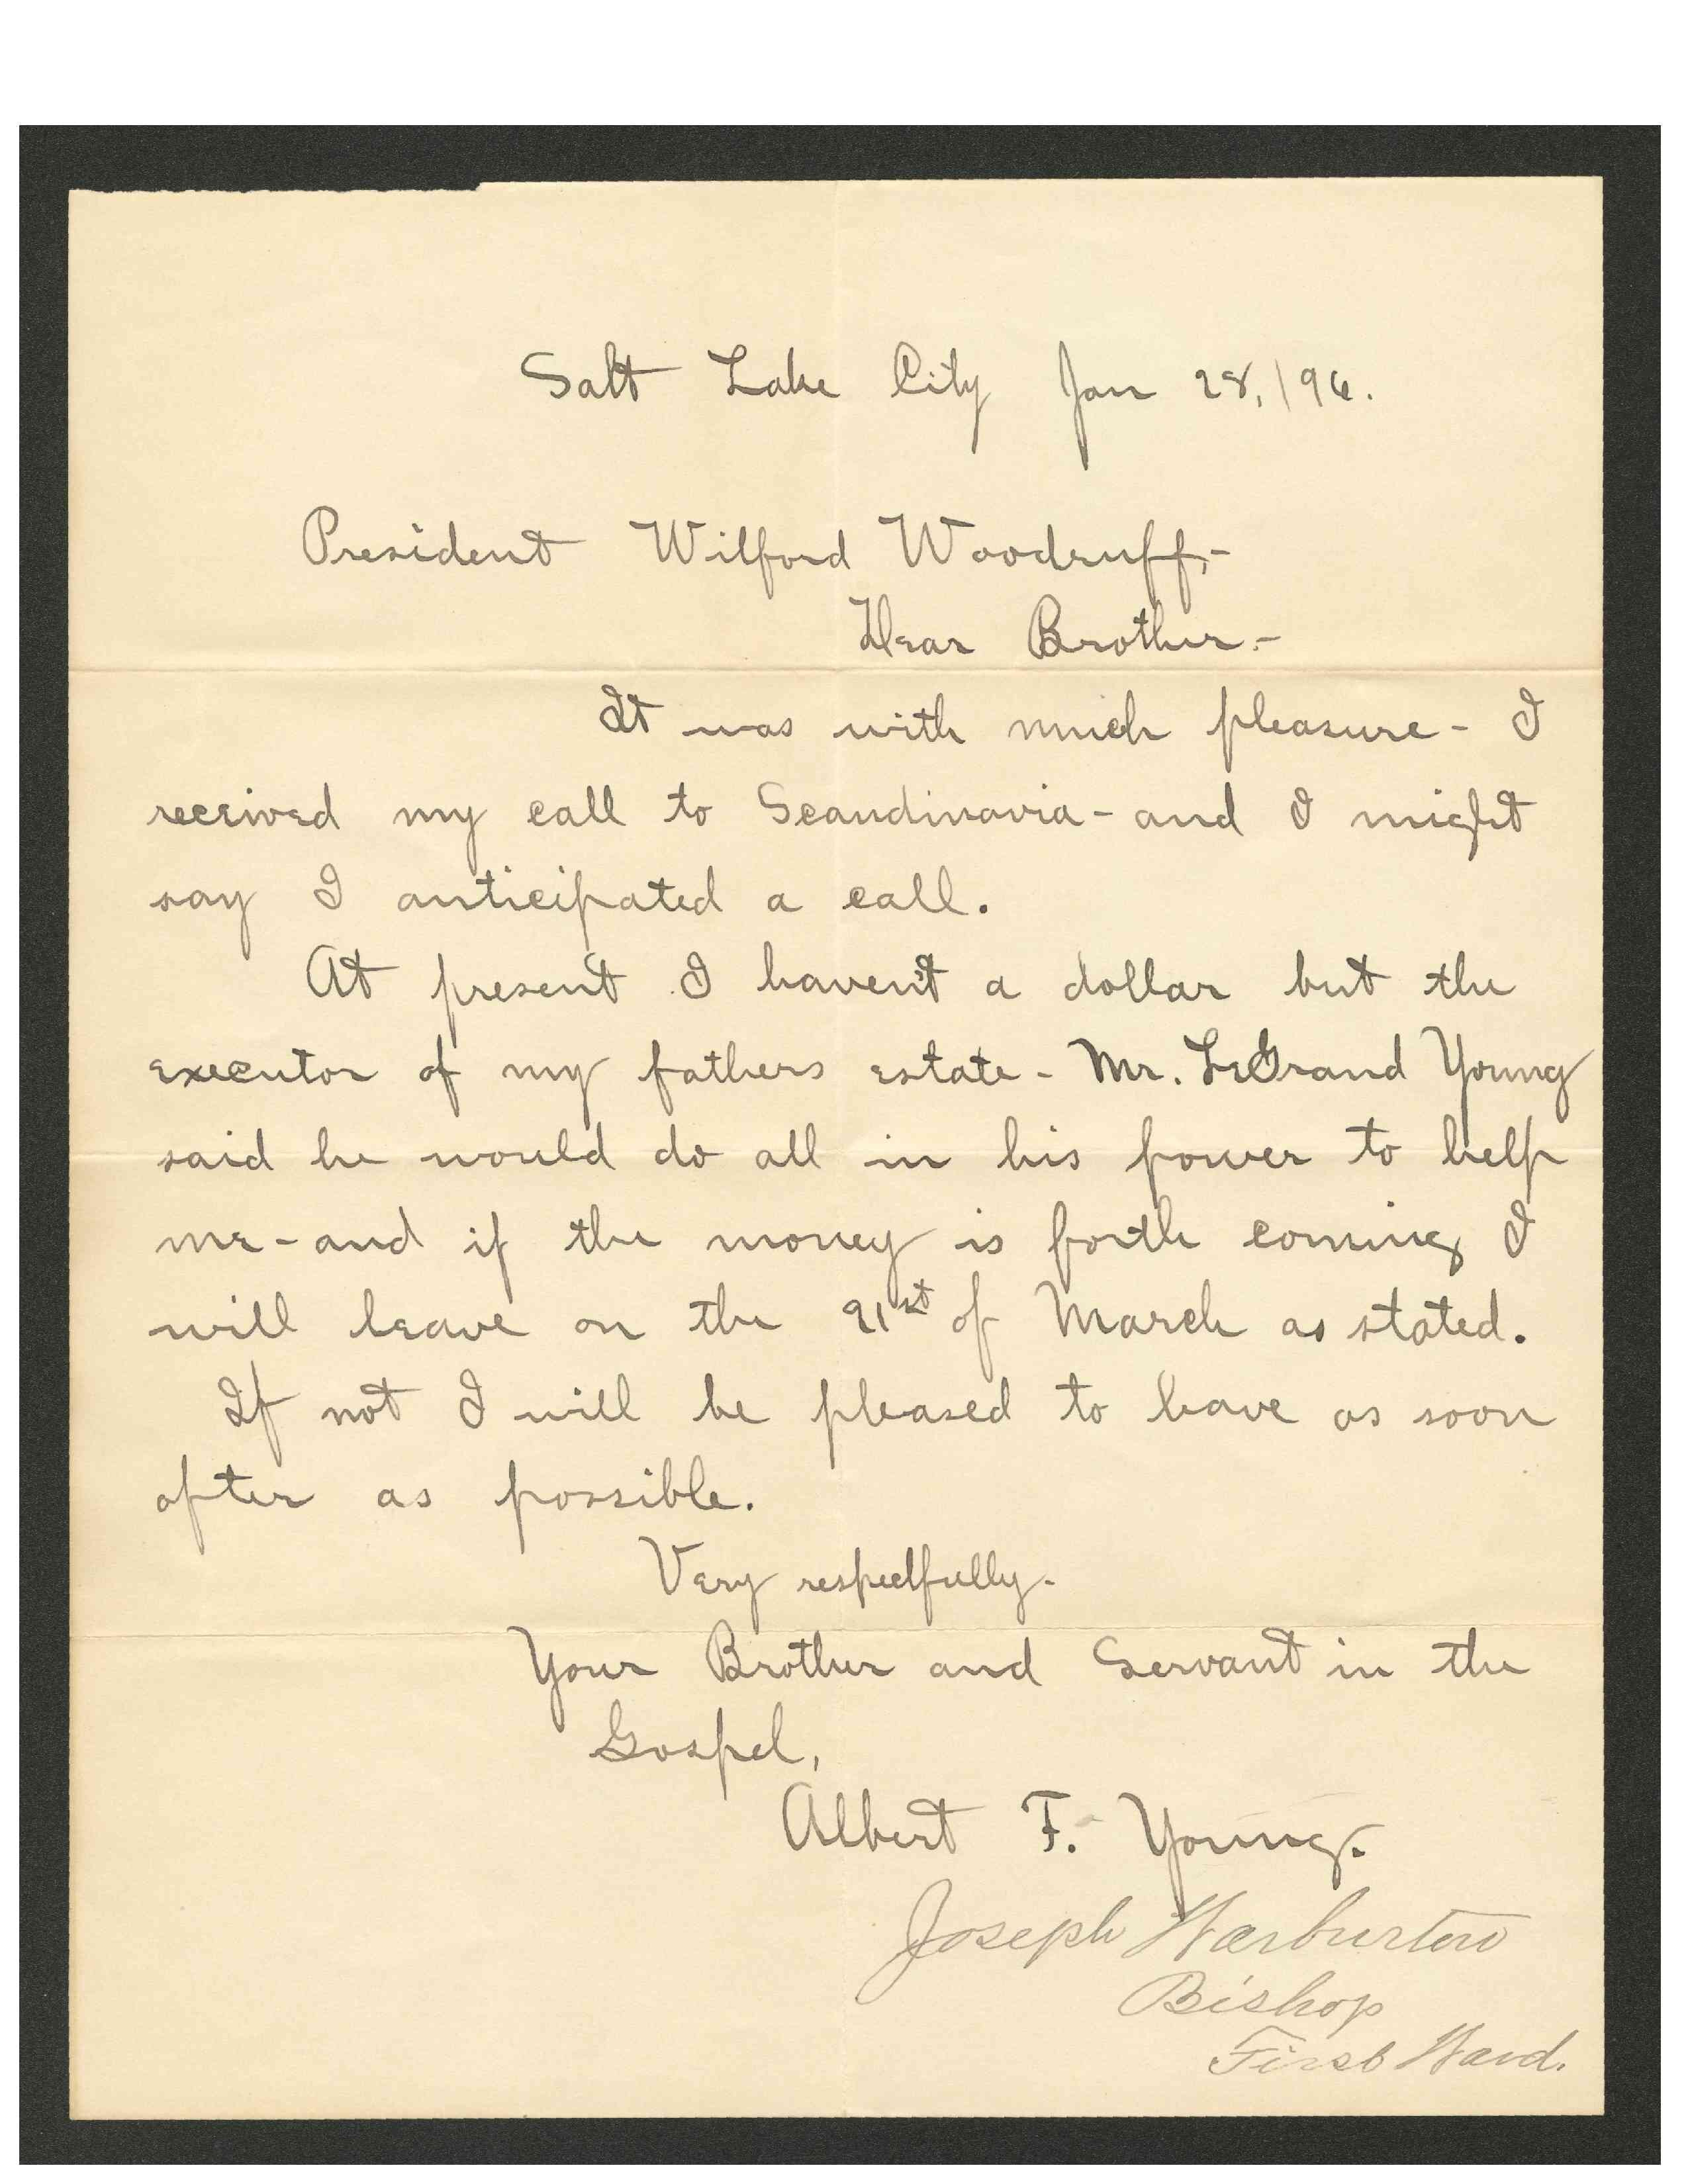 Salt Lake City Jan 28, /96.
President Wilford Woodruff,-
Dear Brother.-
It was with much pleasure - I
received my call to Scandinavia - and I might
say I anticipated a call.
At present I haven't a dollar but the
executor of my fathers estate - Mr. LeGrand Young
said he would do all in his power to help
me - and if the money is forth coming I
will leave on the 21st of March as stated.
If not I will be pleased to leave as soon
after as possible.
Very respectfully.
Your Brother and Servant in the
Gospel,
Albert F. Young.
Joseph Warburton
Bishop
First Ward.